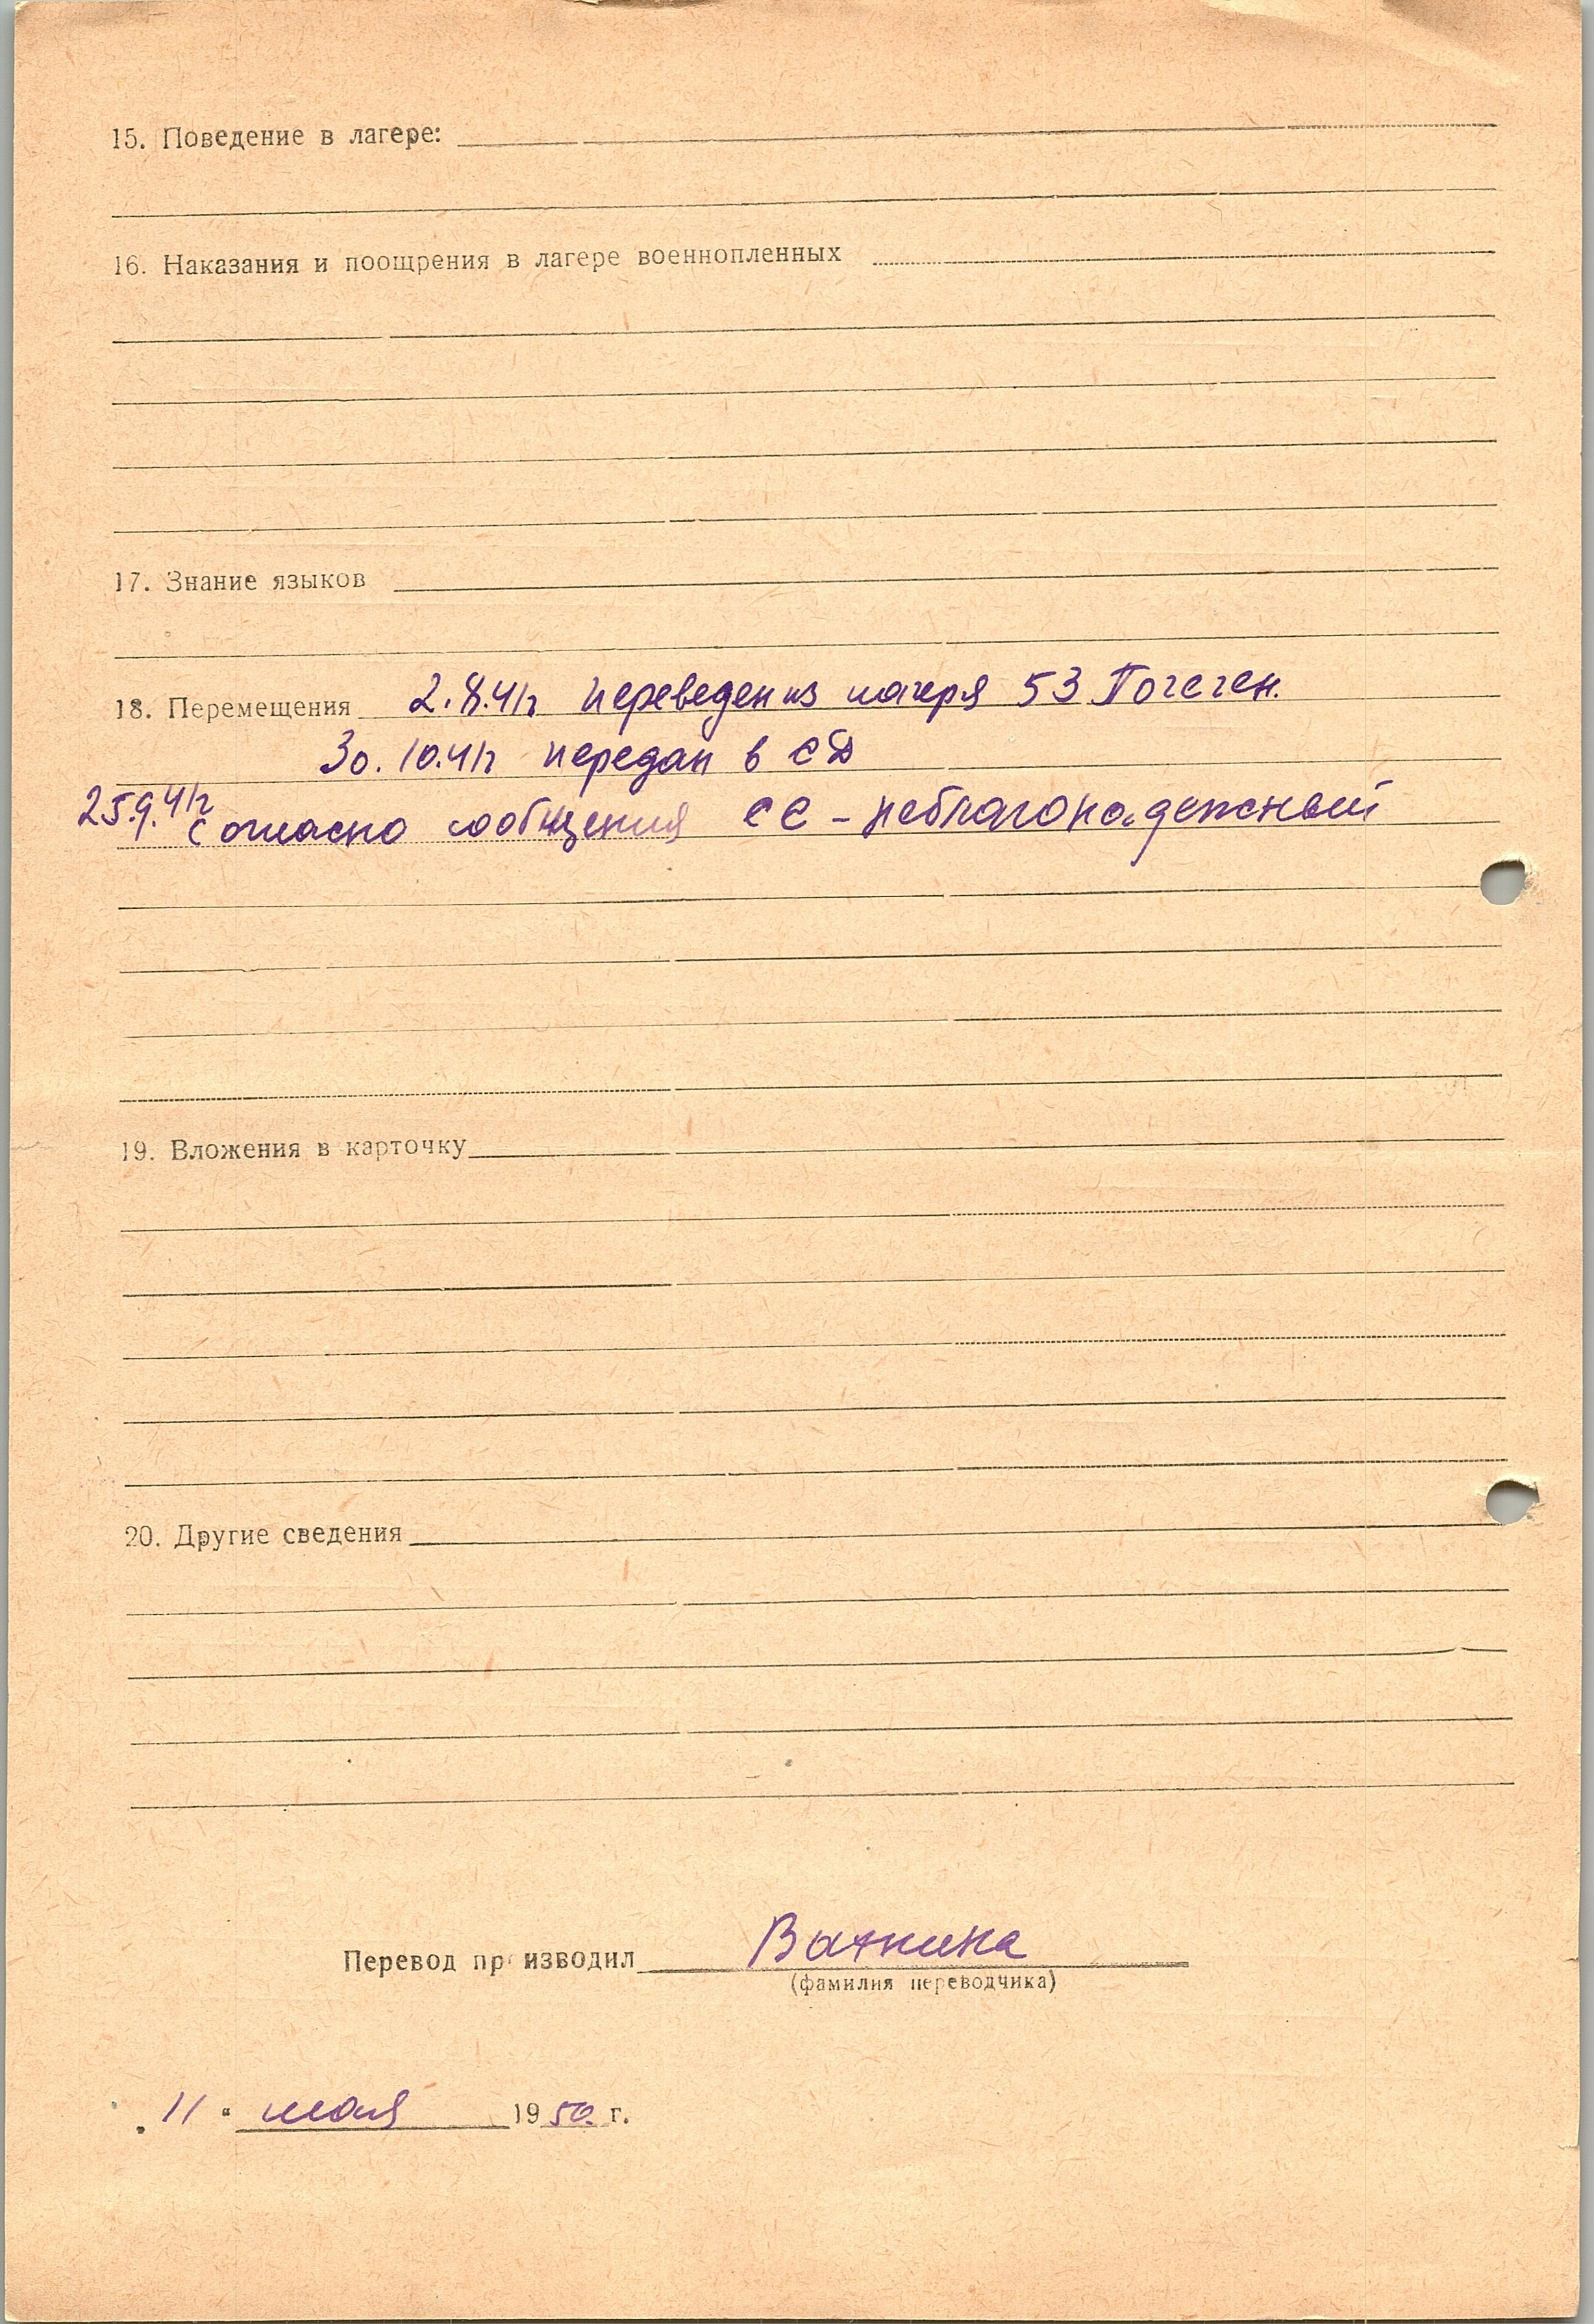 15. Поведение в лагере:
16. Наказания и поощрения в лагере военнопленных
17. Знание языков
18. Перемещения 2.8.41г переведен из лагеря 53 Погеген.
30.10.41г передан в СД
25.9.41г Согласно сообщения СС - неблагонадежный
19. Вложения в карточку
20. Другие сведения
Перевод пр изводил Ваткина
(фамилия переводчика)
„ 11 “ мая 1950 г.